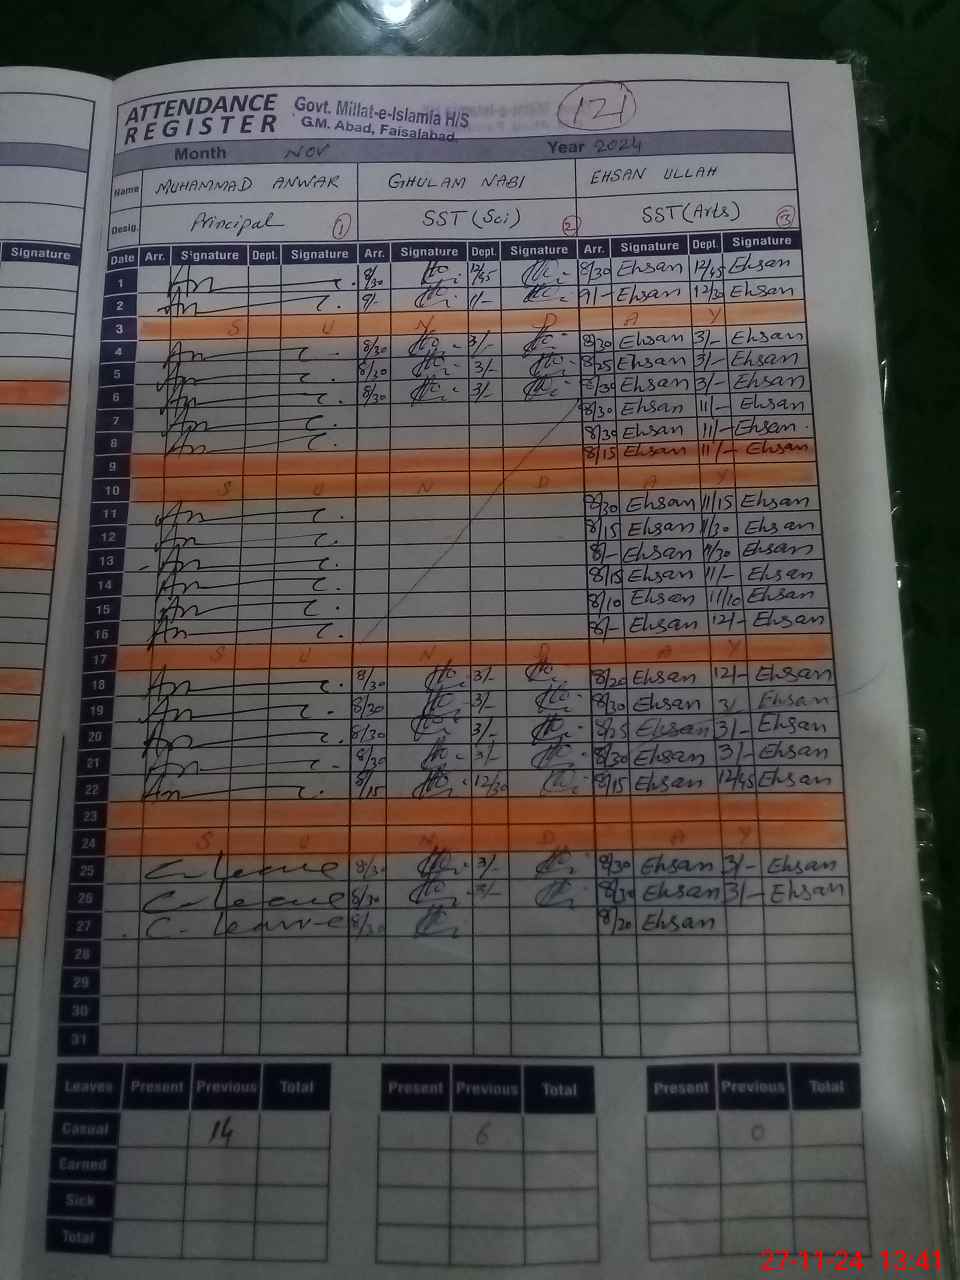 ATTENDANCE REGISTER
Govt. Millat-e-Islamia H/S
G.M. Abad, Faisalabad.
121
Month Nov Year 2024
Name MUHAMMAD ANWAR GHULAM NABI EHSAN ULLAH
Desig. Principal 1 SST (Sci) 2 SST (Arts) 3
Signature
Date Arr. Signature Dept. Signature Arr. Signature Dept. Signature Arr. Signature Dept. Signature
1 8/30 12/45 8/30 Ehsan 12/45 Ehsan
2 9/- 11/- 9/- Ehsan 12/30 Ehsan
3 S U N D A Y
4 8/30 3/- 8/30 Ehsan 3/- Ehsan
5 8/30 3/- 8/25 Ehsan 3/- Ehsan
6 8/30 3/- 8/30 Ehsan 3/- Ehsan
7 8/30 Ehsan 11/- Ehsan
8 8/30 Ehsan 11/- Ehsan
9 8/15 Ehsan 11/- Ehsan
10 S U N D A Y
11 8/30 Ehsan 11/15 Ehsan
12 8/15 Ehsan 11/30 Ehsan
13 8/- Ehsan 11/30 Ehsan
14 8/15 Ehsan 11/- Ehsan
15 8/10 Ehsan 11/10 Ehsan
16 8/- Ehsan 12/- Ehsan
17 S U N D A Y
18 8/30 3/- 8/20 Ehsan 12/- Ehsan
19 8/30 3/- 8/30 Ehsan 3/- Ehsan
20 8/30 3/- 8/25 Ehsan 3/- Ehsan
21 8/30 3/- 8/30 Ehsan 3/- Ehsan
22 8/15 12/30 8/15 Ehsan 12/45 Ehsan
23
24 S U N D A Y
25 C. Leave 8/30 3/- 8/30 Ehsan 3/- Ehsan
26 C. Leave 8/30 3/- 8/30 Ehsan 3/- Ehsan
27 C. Leave 8/30 8/20 Ehsan
28
29
30
31
Leaves Present Previous Total Present Previous Total Present Previous Total
Casual 14 6 0
Earned
Sick
Total
27-11-24 13:41